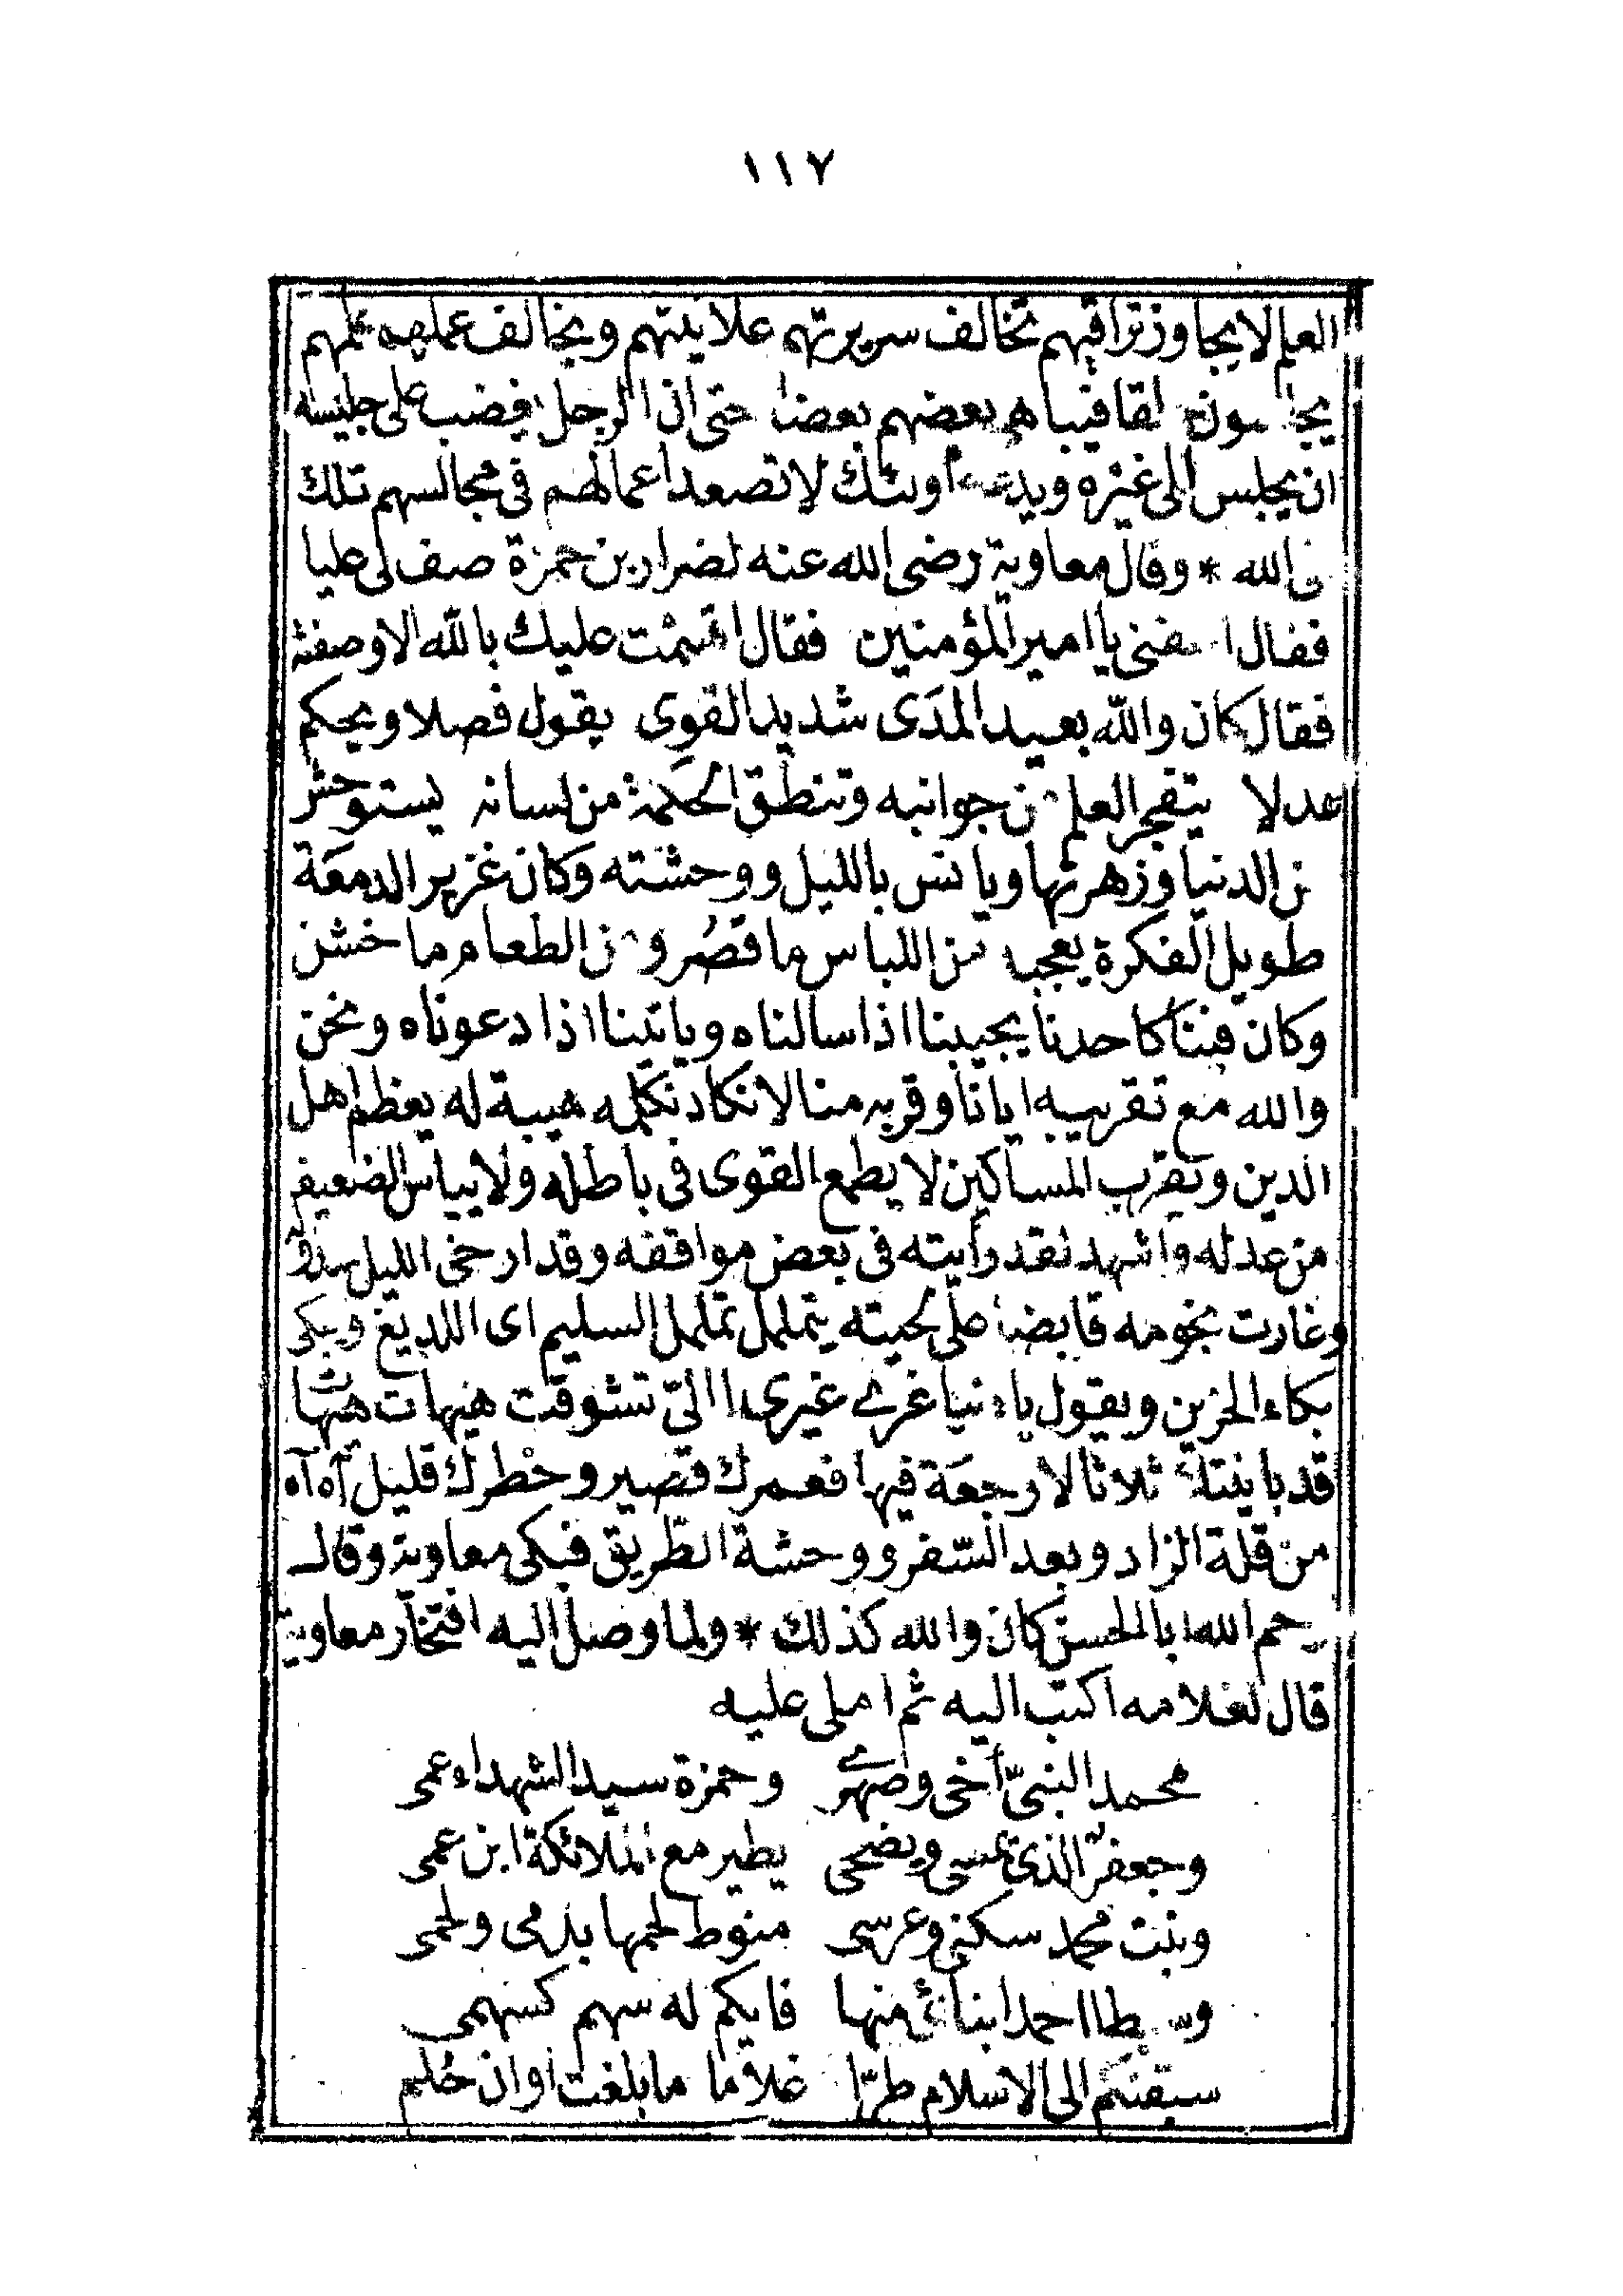 ١١٧
العلم لا يجاوز تراقيهم تخالف سريرتهم علانيتهم ويخالف عملهم علمهم
يجلسون حلقا فيباهى بعضهم بعضا حتى ان الرجل يغضب على جليسه
ان يجلس الى غيره ويدعه اولئك لا تصعد اعمالهم فى مجالسهم تلك
الى الله * وقال معاوية رضى الله عنه لضرار بن حمزة صف لى عليا
فقال اعفنى يا امير المؤمنين فقال اقسمت عليك بالله الا وصفته
فقال كان والله بعيد المدَى شديد القوِى يقول فصلا ويحكم
عدلا يتفجر العلم من جوانبه وتنطق الحكمة من لسانه يستوحش
من الدنيا وزهرتها ويانس بالليل ووحشته وكان غزير الدمعَة
طويل الفكرة يعجبه من اللباس ما قصُر ومن الطعام ما خشن
وكان فينا كاحدنا يجيبنا اذا سالناه وياتينا اذا دعوناه ونحن
والله مع تقريبه ايانا وقربه منا لا نكاد نكلمه هيبة له يعظم اهل
الدين ويقرب المساكين لا يطمع القوى فى باطله ولا يياس الضعيف
من عدله واشهد لقد رأيته فى بعض مواقفه وقد ارخى الليل سدوله
وغارت نجومه قابضا على لحيته يتململ تململ السليم اى اللديغ ويبكى
بكاء الحزين ويقول يا دنيا غرى غيرى االىّ تشوقت هيهات هيهات
قد باينتك ثلاثا لا رجعَة فيها فعمرك قصير وخطرك قليل آه آه
من قلة الزاد وبعد السّفر ووحشة الطّريق فبكى معاوية وقال
رحم الله ابا الحسن كان والله كذلك * ولما وصل اليه افتخار معاوية
قال لغلامه اكتب اليه ثم املى عليه
محمد النبىّ أخى وصهرى وحمزة سيد الشهداء عمى
وجعفر الذى يمسى ويضحى يطير مع الملائكة ابن عمى
وبنت محمد سكنى وعرسى منوط لحمها بدمى ولحمى
وسبطا احمد ابنائى منها فايكم له سهم كسهمى
سبقتكم الى الاسلام طرّا غلاما ما بلغت اوان حُلم